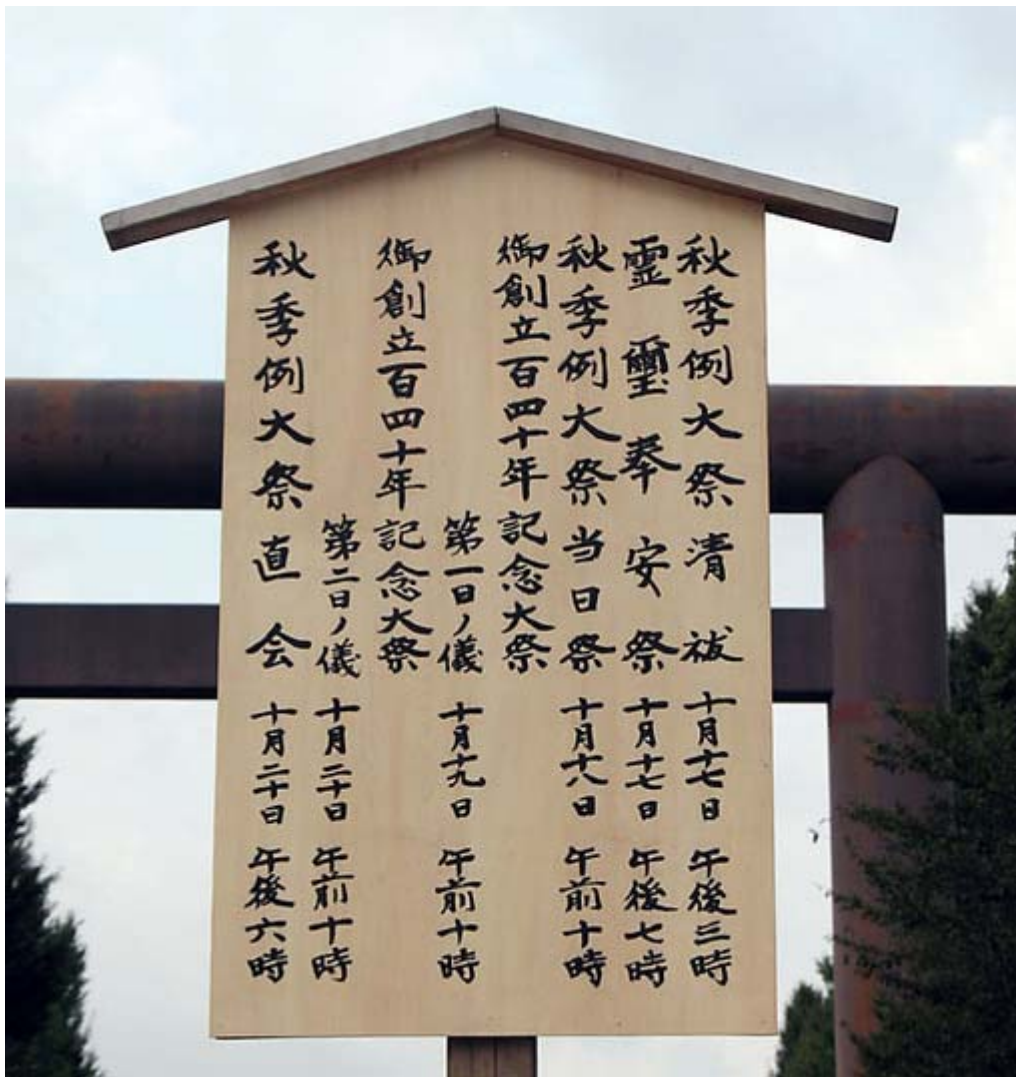 秋季例大祭清祓 十月十七日 午後三時
霊璽奉安祭 十月十七日 午後七時
秋季例大祭当日祭 十月十八日 午前十時
御創立百四十年記念大祭
第一日ノ儀 十月十九日 午前十時
御創立百四十年記念大祭
第二日ノ儀 十月二十日 午前十時
秋季例大祭直会 十月二十日 午後六時